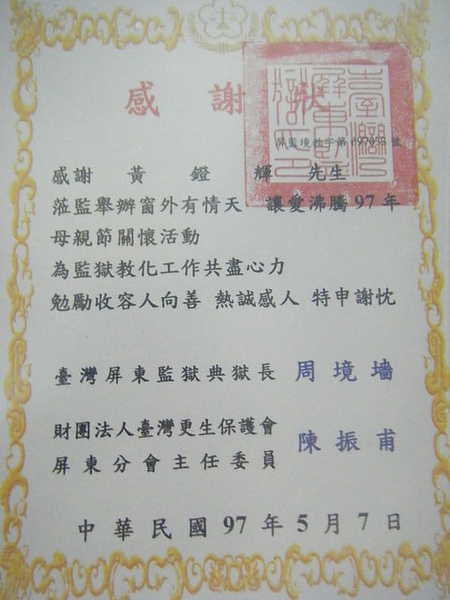 感謝狀
屏監境教字第097055號
感謝 黃鐙輝 先生
蒞監舉辦窗外有情天 讓愛沸騰97年
母親節關懷活動
為監獄教化工作共盡心力
勉勵收容人向善 熱誠感人 特申謝忱
臺灣屏東監獄典獄長 周境墻
財團法人臺灣更生保護會
屏東分會主任委員 陳振甫
中華民國97年5月7日